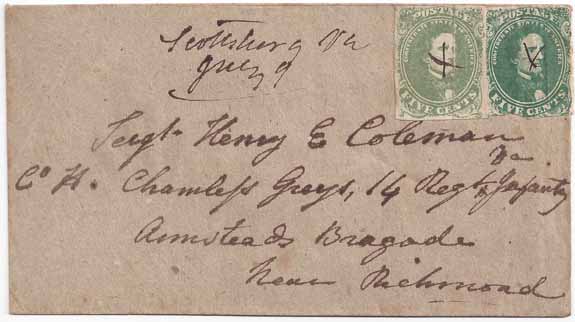 POSTAGE
CONFEDERATE STATES OF AMERICA
FIVE CENTS
POSTAGE
CONFEDERATE STATES OF AMERICA
FIVE CENTS
Scottsburg Va
9
Sergt Henry E Coleman
Co H. Chamless Greys, 14 Regt Va Infanty
Armsteads Bragade
Near Richmond